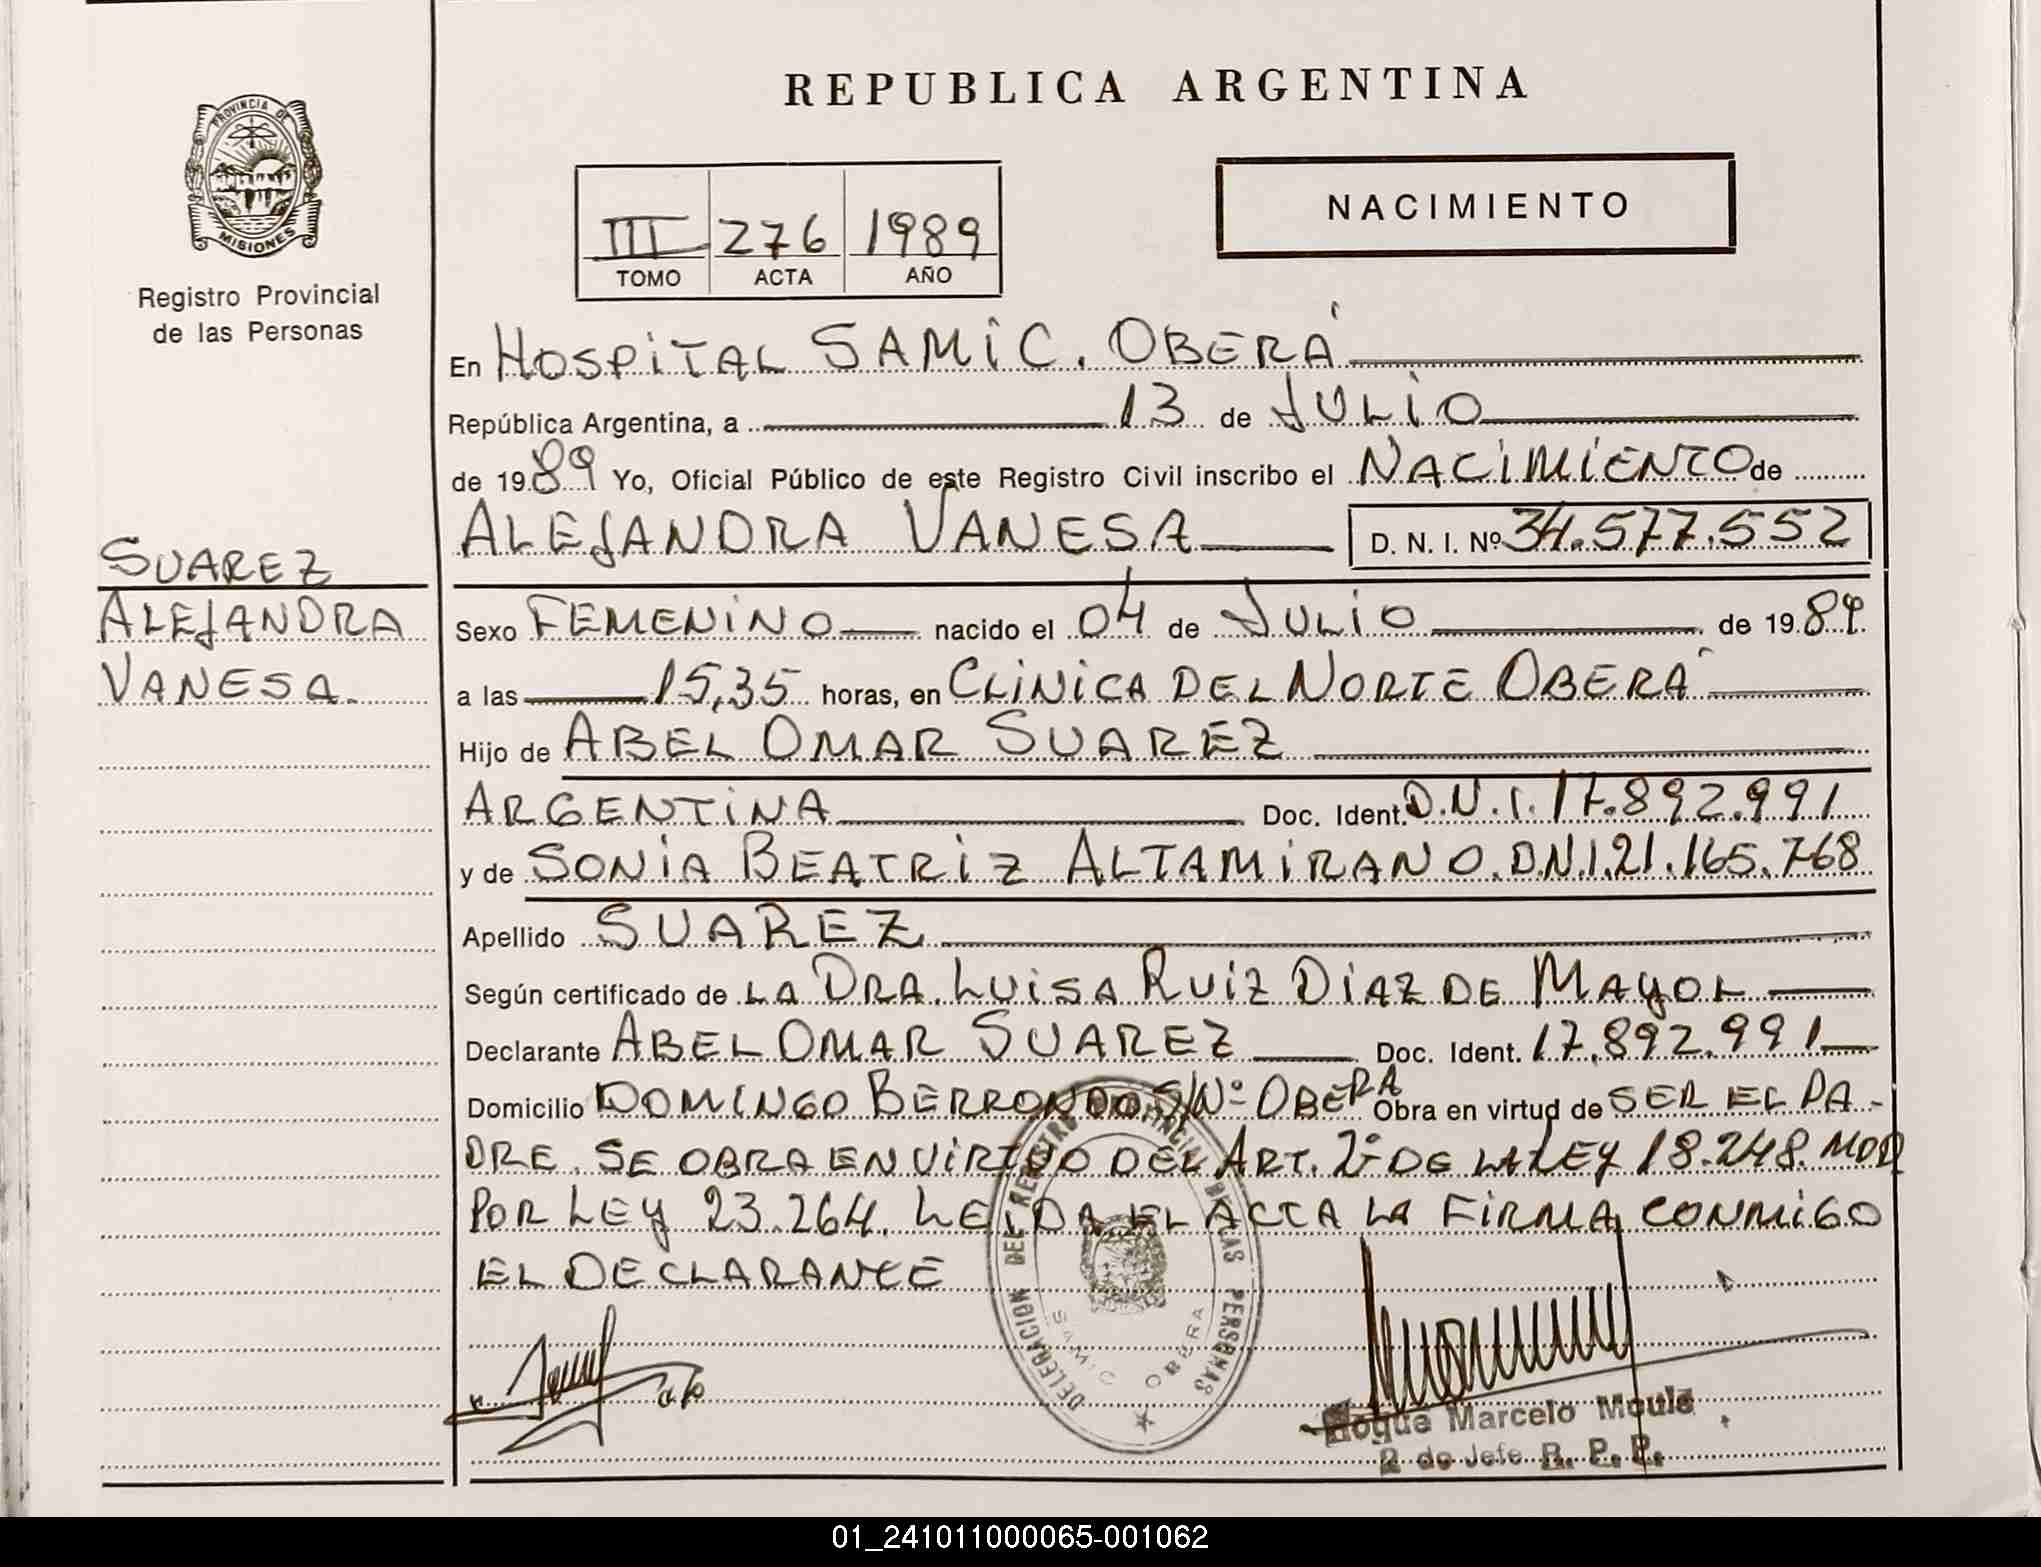 REPUBLICA ARGENTINA
PROVINCIA DE
MISIONES
Registro Provincial
de las Personas
III 276 1989
TOMO ACTA AÑO
NACIMIENTO
En HOSPITAL SAMIC. OBERÁ
República Argentina, a 13 de JULIO
de 1989 Yo, Oficial Público de este Registro Civil inscribo el NACIMIENTO de
ALEJANDRA VANESA D. N. I. Nº 34.577.552
SUAREZ
ALEJANDRA
VANESA.
Sexo FEMENINO nacido el 04 de JULIO de 1989
a las 15,35 horas, en CLINICA DEL NORTE OBERÁ
Hijo de ABEL OMAR SUAREZ
ARGENTINA Doc. Ident. D.N.I. 17.892.991
y de SONIA BEATRIZ ALTAMIRANO. D.N.I. 21.165.768
Apellido SUAREZ
Según certificado de LA DRA. LUISA RUIZ DIAZ DE MAYOL
Declarante ABEL OMAR SUAREZ Doc. Ident. 17.892.991
Domicilio DOMINGO BERRONDO S/Nº OBERA Obra en virtud de SER EL PA-
DRE. SE OBRA EN VIRTUD DEL ART. 2º DE LA LEY 18.248. MOD
POR LEY 23.264. LEIDA EL ACTA LA FIRMA CONMIGO
EL DECLARANTE
DELEGACION DEL REGISTRO PROVINCIAL DE LAS PERSONAS
SAMIC OBERA
Roque Marcelo
2 do Jefe R. P. P.
01_241011000065-001062